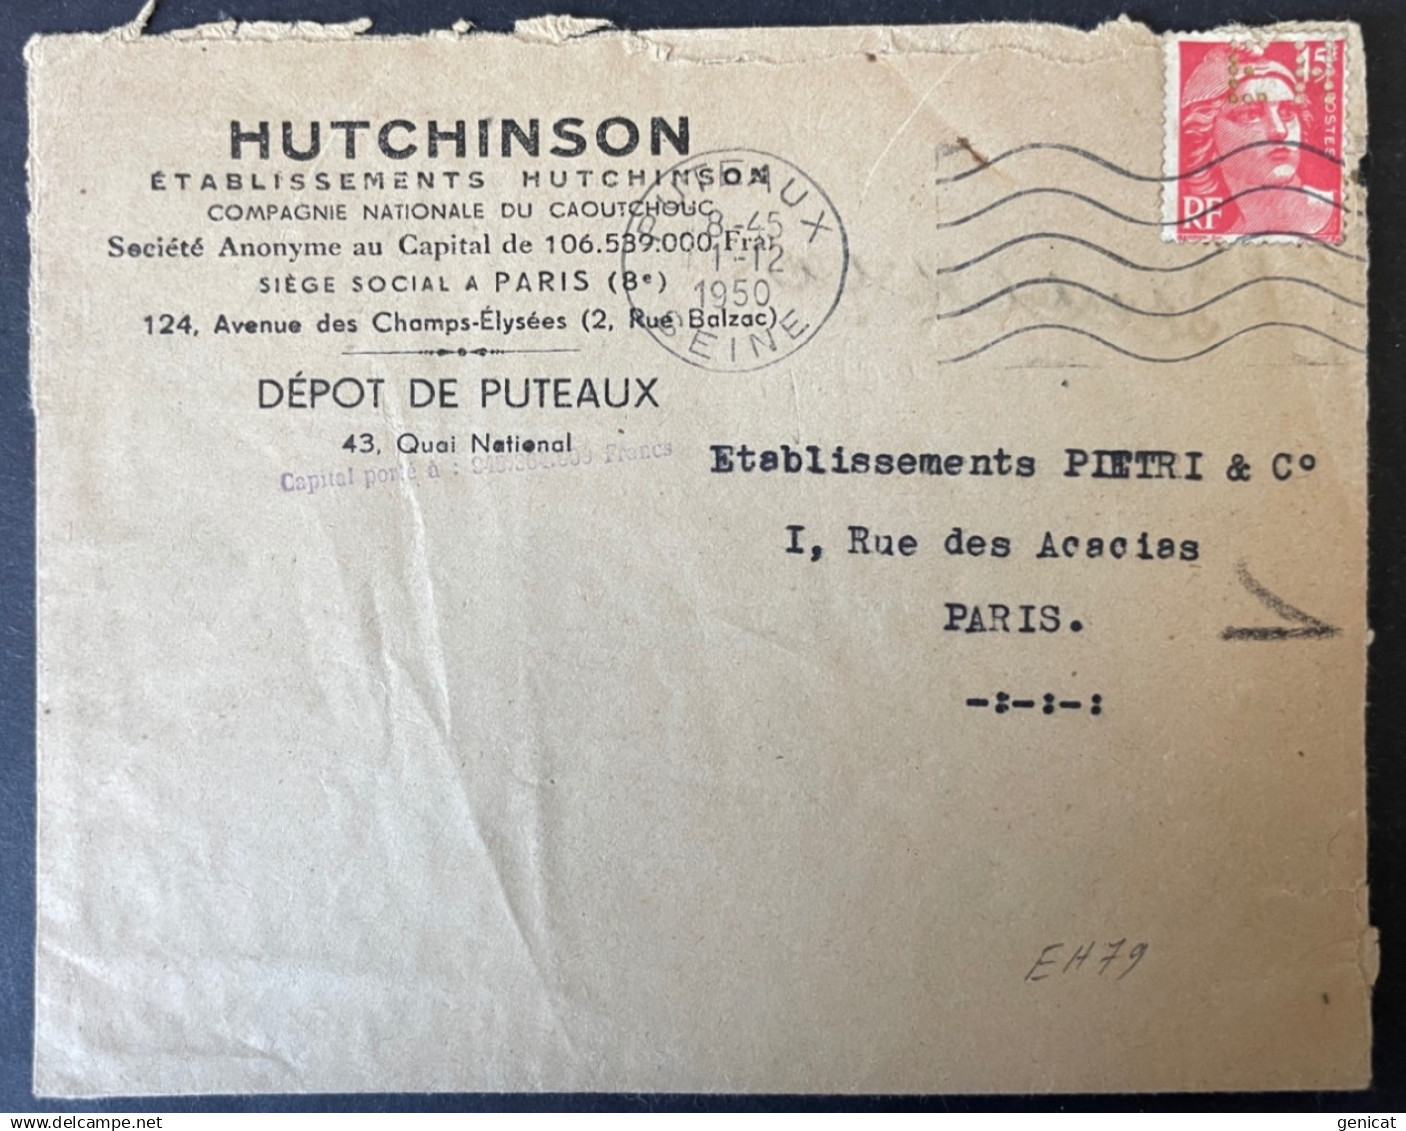 HUTCHINSON
ÉTABLISSEMENTS HUTCHINSON
COMPAGNIE NATIONALE DU CAOUTCHOUC
Société Anonyme au Capital de 106.539.000 Fran
SIÈGE SOCIAL A PARIS (8e)
124, Avenue des Champs-Élysées (2, Rue Balzac)
DÉPOT DE PUTEAUX
43, Quai National
Capital porté à : Francs
PUTEAUX
8-45
11-12
1950
SEINE
15
POSTES
RF
Etablissements PIETRI & Co
I, Rue des Acacias
PARIS.
-:-:-:
EH79
genicat